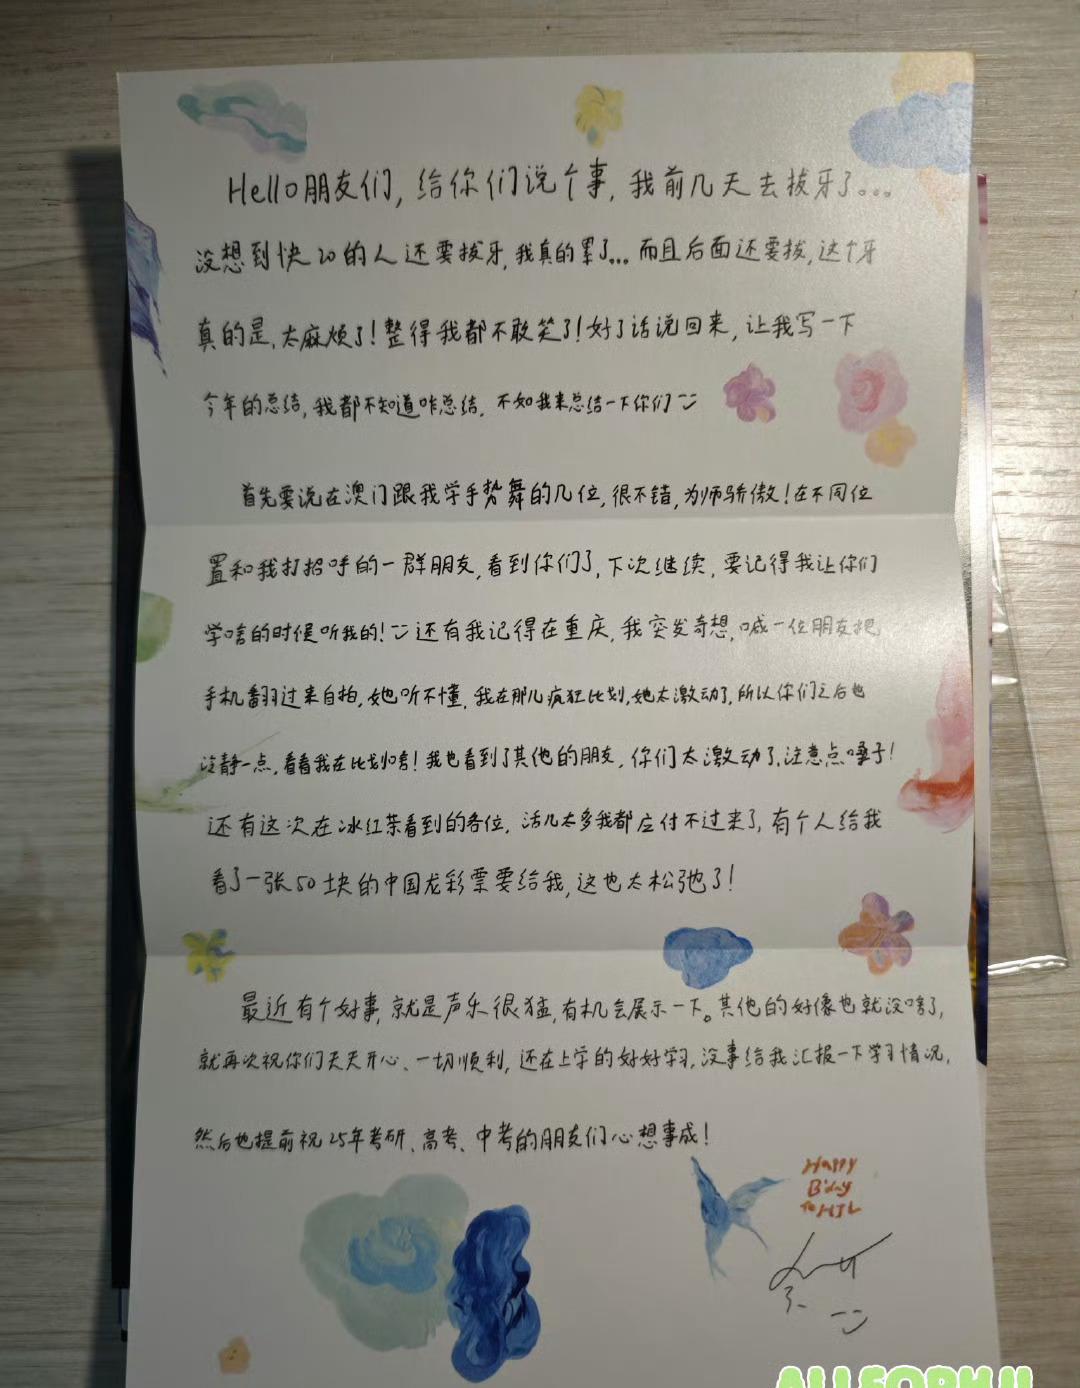 Hello朋友们，给你们说个事，我前几天去拔牙了...
没想到快20的人还要拔牙，我真的累了...而且后面还要拔，这个牙
真的是，太麻烦了！整得我都不敢笑了！好了话说回来，让我写一下
今年的总结，我都不知道咋总结，不如我来总结一下你们
首先要说在澳门跟我学手势舞的几位，很不错，为师骄傲！在不同位
置和我打招呼的一群朋友，看到你们了，下次继续，要记得我让你们
学啥的时候听我的！还有我记得在重庆，我突发奇想，喊一位朋友把
手机翻过来自拍，她听不懂，我在那儿疯狂比划，她太激动了，所以你们之后也
冷静一点，看看我在比划啥！我也看到了其他的朋友，你们太激动了，注意点嗓子！
还有这次在冰红茶看到的各位，活儿太多我都应付不过来了，有个人给我
看了一张50块的中国龙彩票要给我，这也太松弛了！
最近有个好事，就是声乐很猛，有机会展示一下。其他的好像也就没啥了，
就再次祝你们天天开心、一切顺利，还在上学的好好学习，没事给我汇报一下学习情况，
然后也提前祝25年考研、高考、中考的朋友们心想事成！
Happy
B'day
To HJL
ALLFORHJL